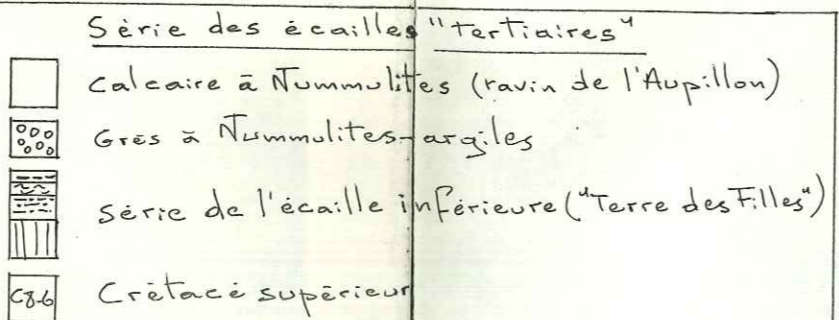 Série des écailles "tertiaires"
Calcaire à Nummulites (ravin de l'Aupillon)
Grès à Nummulites-argiles
Série de l'écaille inférieure ("Terre des Filles")
C8-6 Crétacé supérieur